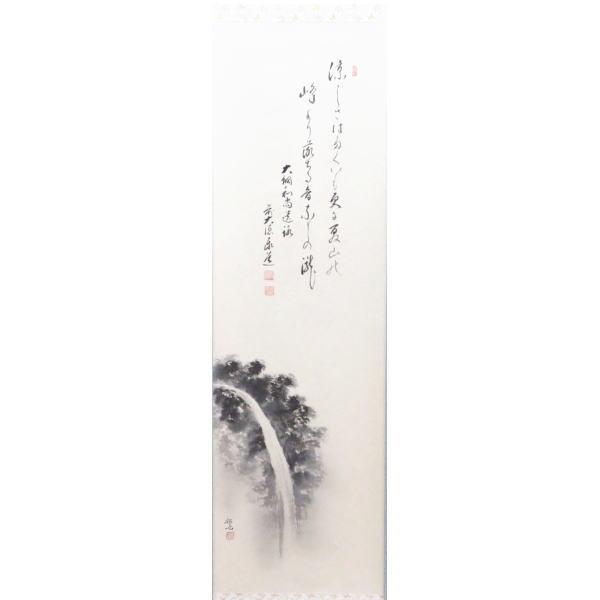 涼しさはたくいも更に夏山の
峰より落る音なしの瀧
大綱和尚遺詠
前大徳